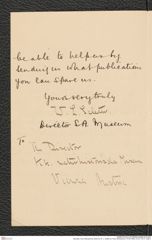 be able to help us by
sending us what publications
you can spare us.
Yours very truly
W. L. Sclater
Director S.A. Museum
To
The Director
K.K. naturhistorische
Vienna